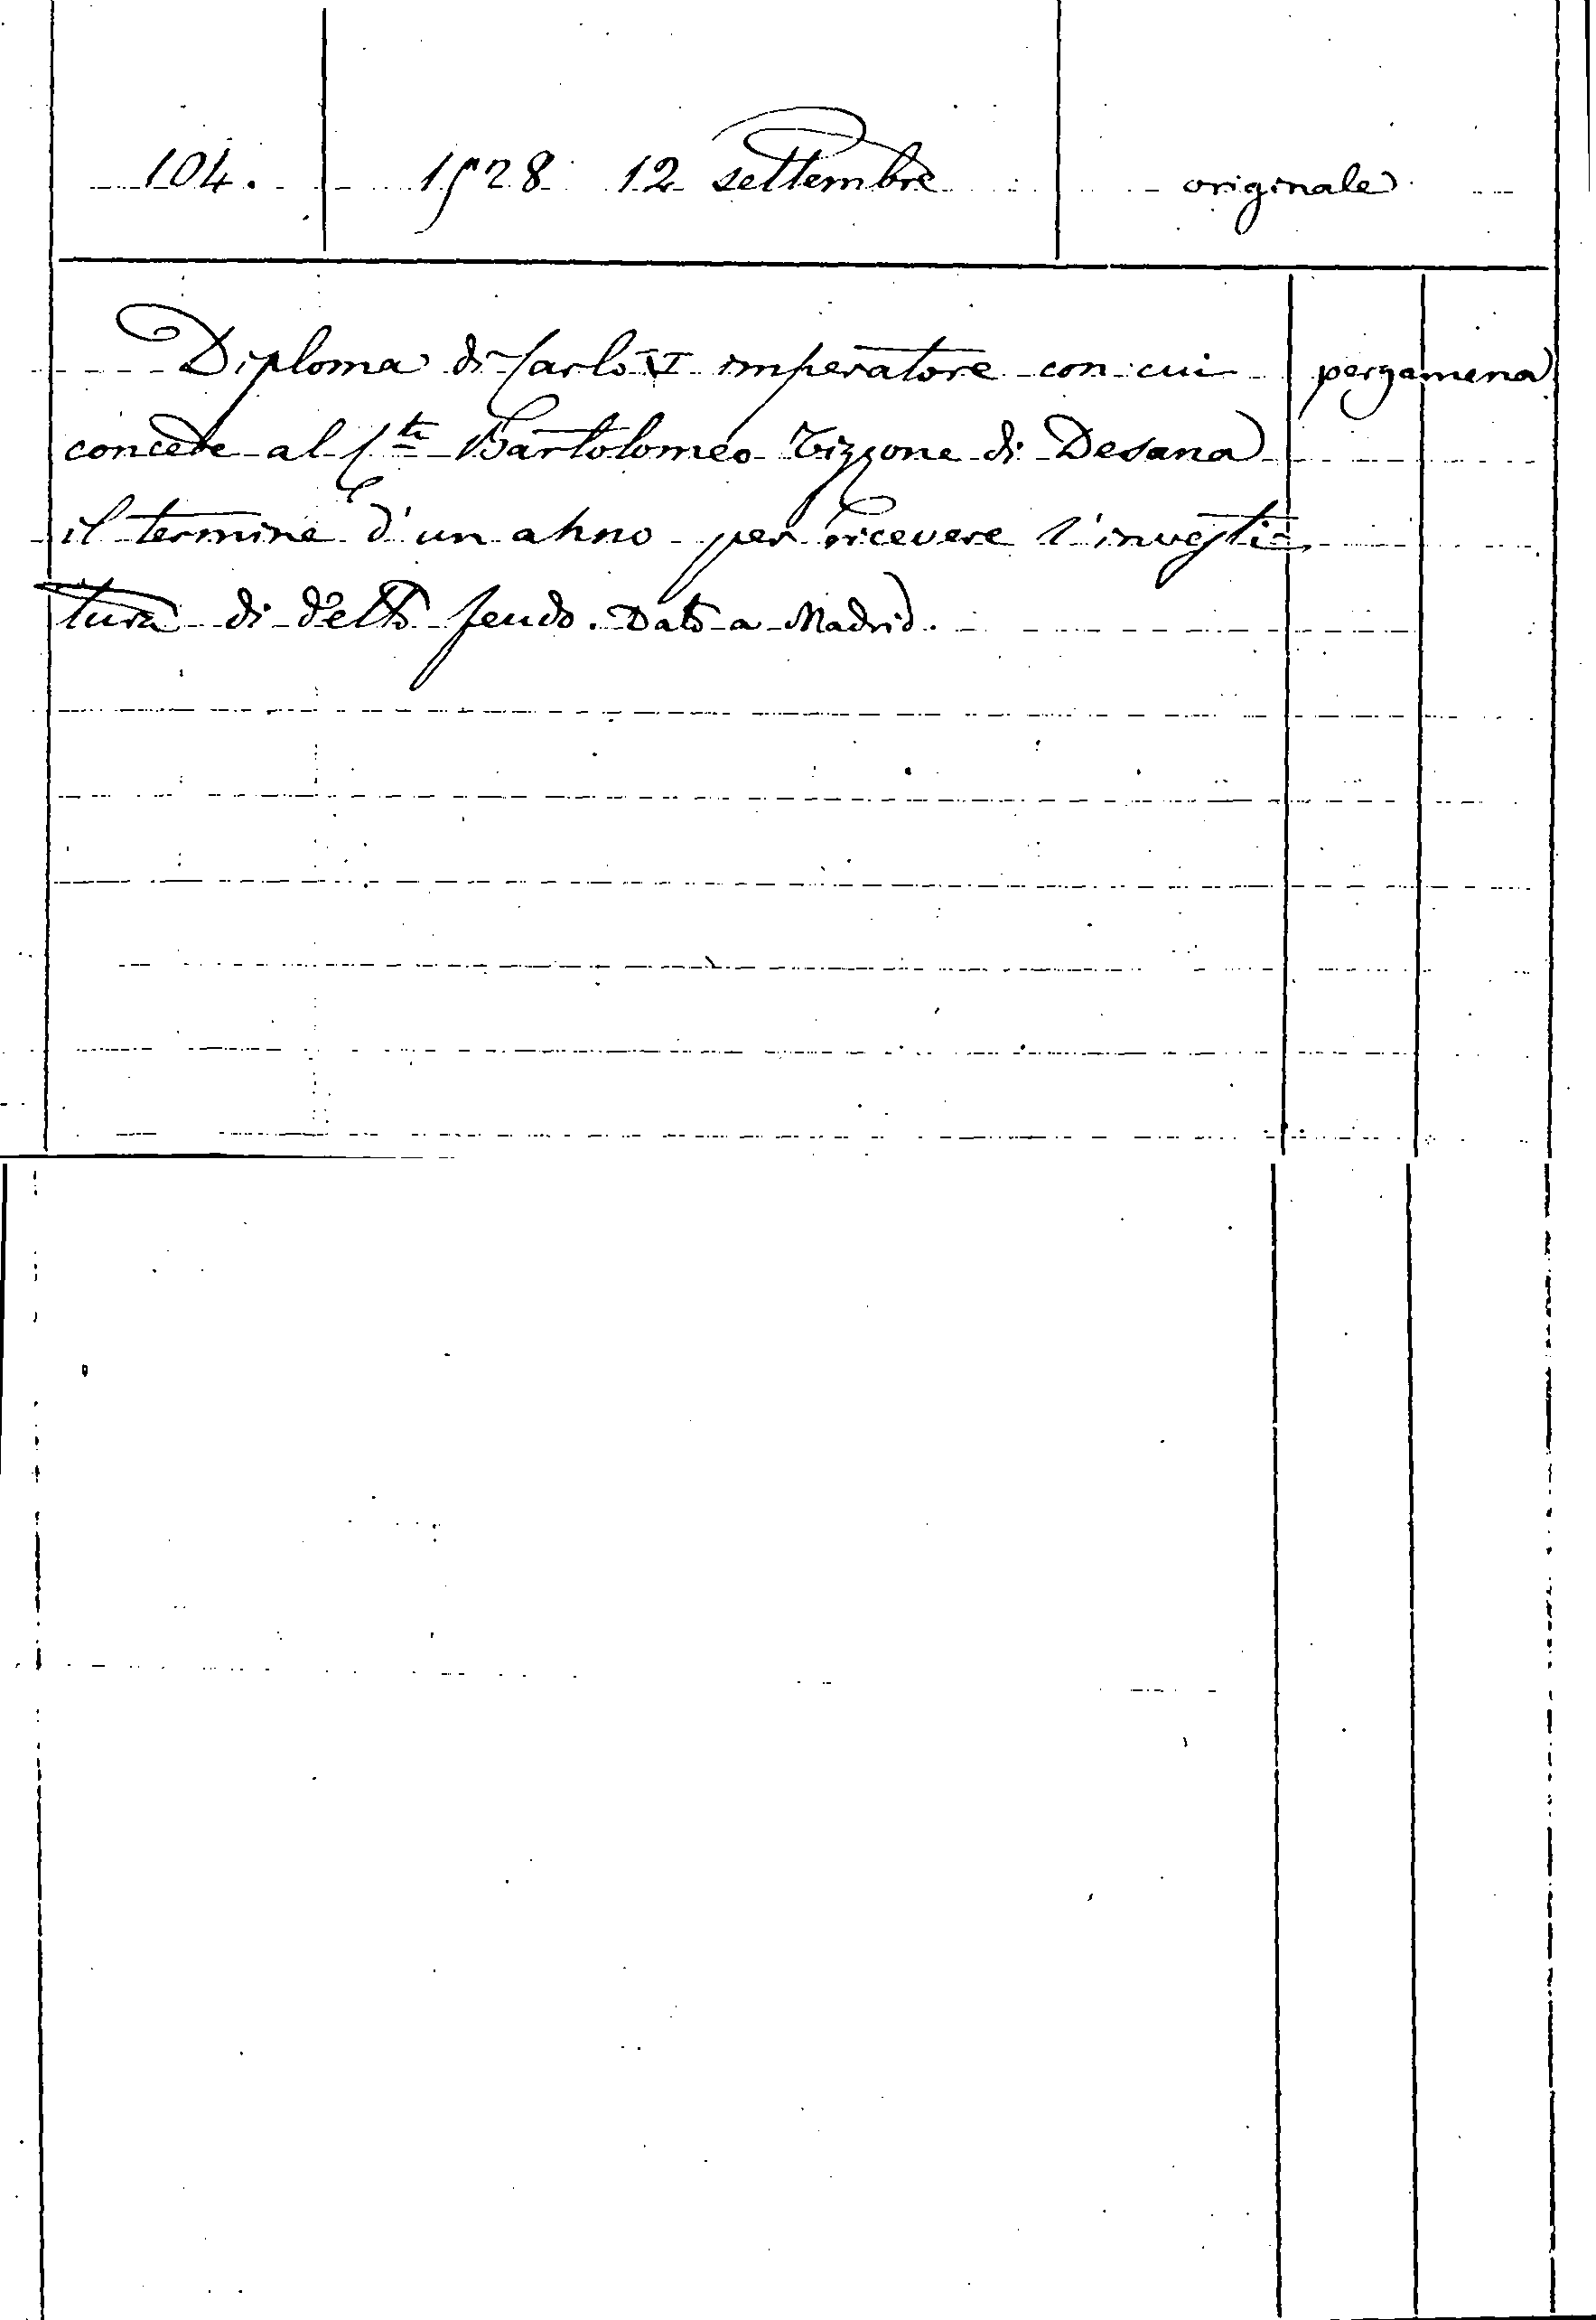 104. 1528 12 settembre originale
Diploma di Carlo VI imperatore con cui pergamena
concede al Cte Bartolomeo Tizzone di Desana
il termine d'un anno per ricevere l'investi-
tura di detto feudo. Dato a Madrid.